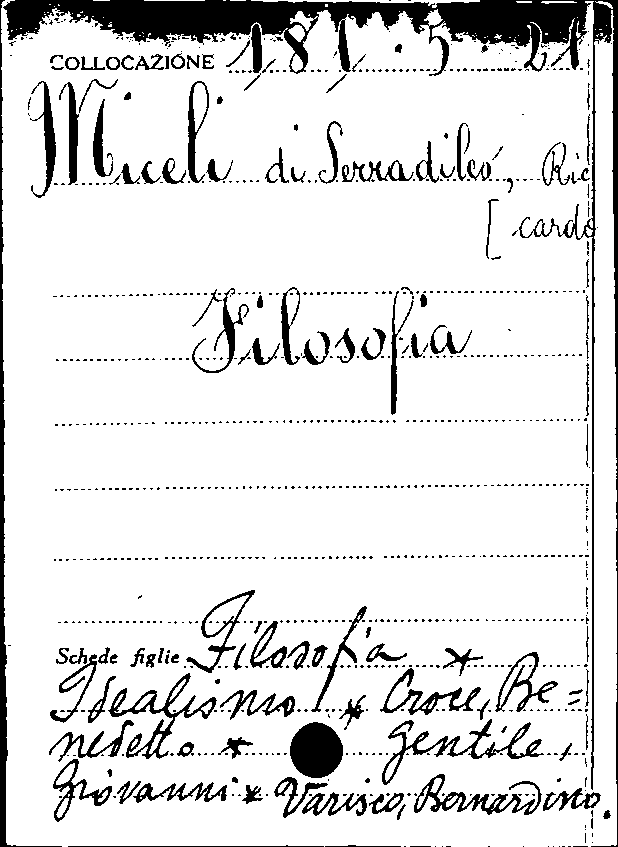 COLLOCAZIONE 181.5.21
Miceli di Serradileo, Ric
[cardo
Filosofia
Schede figlie Filosofia *
Idealismo * Croce, Be=
nedetto * Gentile,
Giovanni * Varisco, Bernardino.